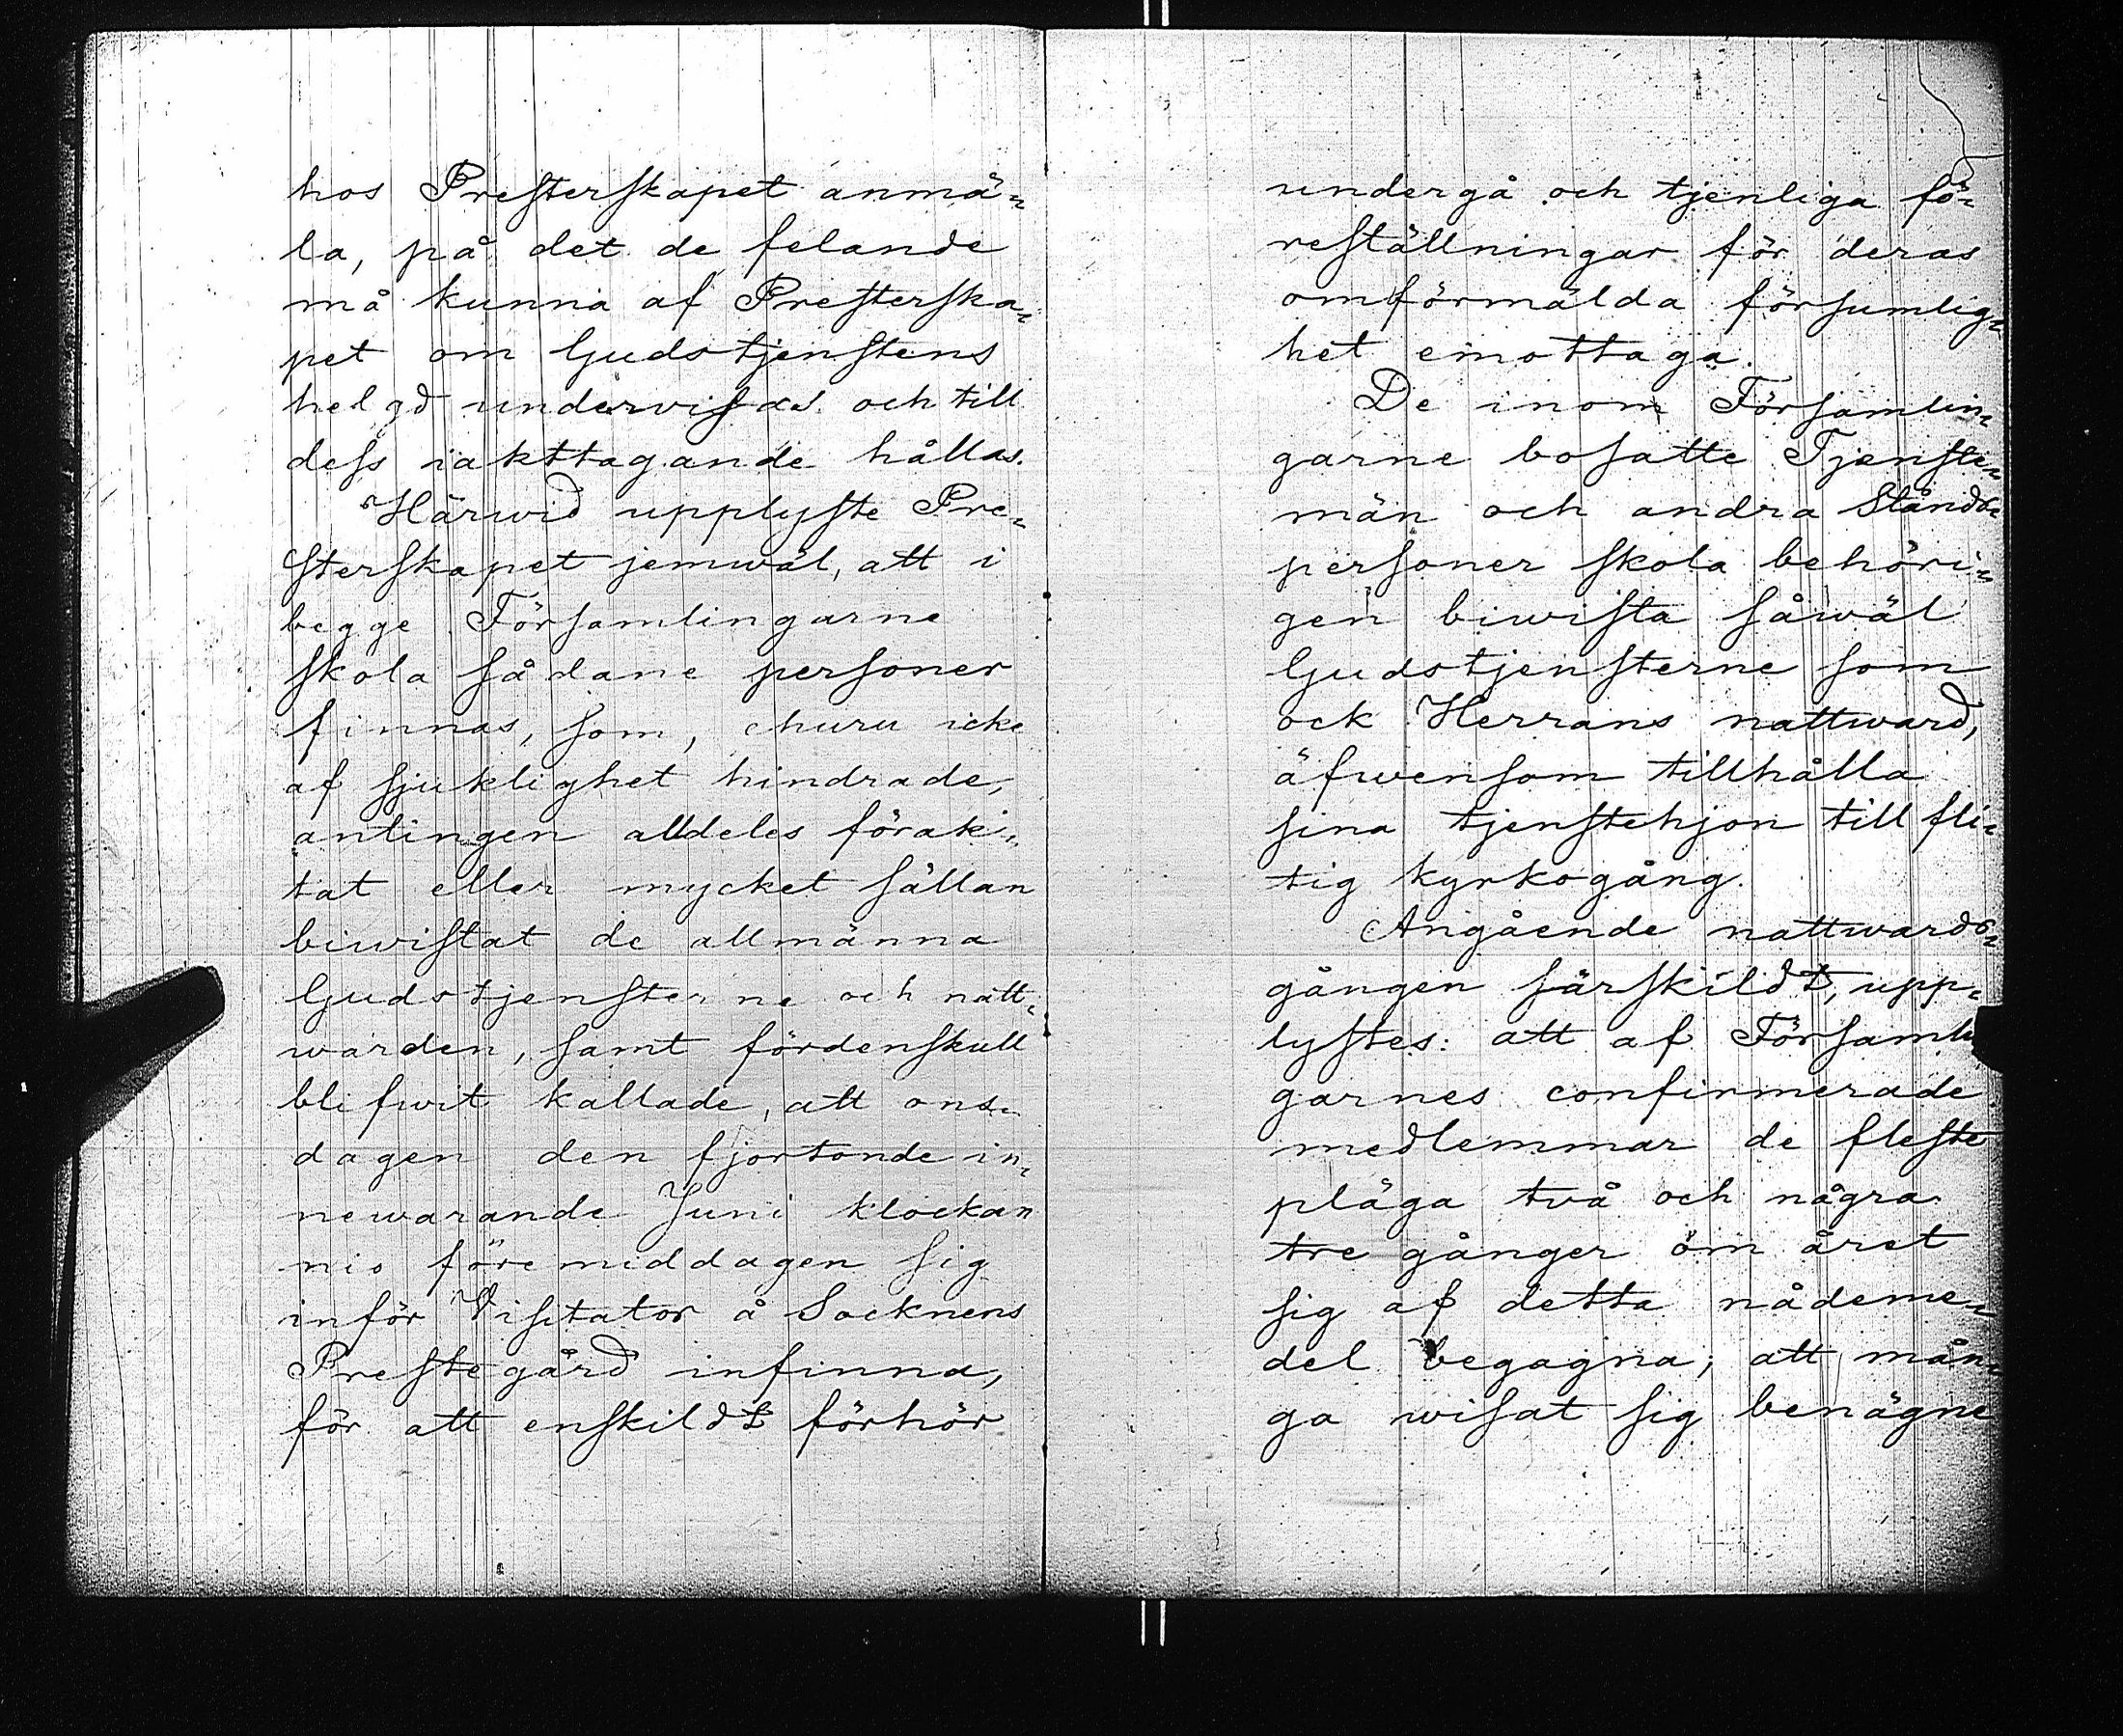 hos Presterskapet anmä-
la, på det de felande
må kunna af Prestersska-
pet om Gudstjenstens
helgd undervisas och till
dess iakttagande hållas.
Härwid upplyste Pre-
sterskapet jemwäl, att i
begge Församlingarne
skola sådane personer
finnas, som, ehuru icke
af sjuklighet hindrade,
antingen alldeles förak-
tat eller mycket sällan
biwistat de allmänna
Gudstjensterne och natt-
warden, samt fördenskull
blifwit kallade, att ons-
dagen den fjortonde in-
newarande Juni klockan
nio föremiddagen sig
inför Visitator å Socknens
Prestegård infinna,
för att enskildt förhör
undergå och tjenliga fö-
reställningar för deras
omförmälda försumlig-
het emottaga.
De inom Församlin-
garne bosatte Tjenste-
män och andra Stånds-
personer skola behöri-
gen biwista såwäl
Gudstjensterne som
ock Herrans nattward,
äfwensom tillhålla
sina tjenstehjon till fli-
tig kyrkogång.
Angående nattwards-
gången särskildt, upp-
lystes: att af Församli
garnes confirmerade
medlemmar de fleste
pläga två och några
tre gånger om året
sig af detta nådeme-
del begagna; att mån-
ga wisat sig benägne